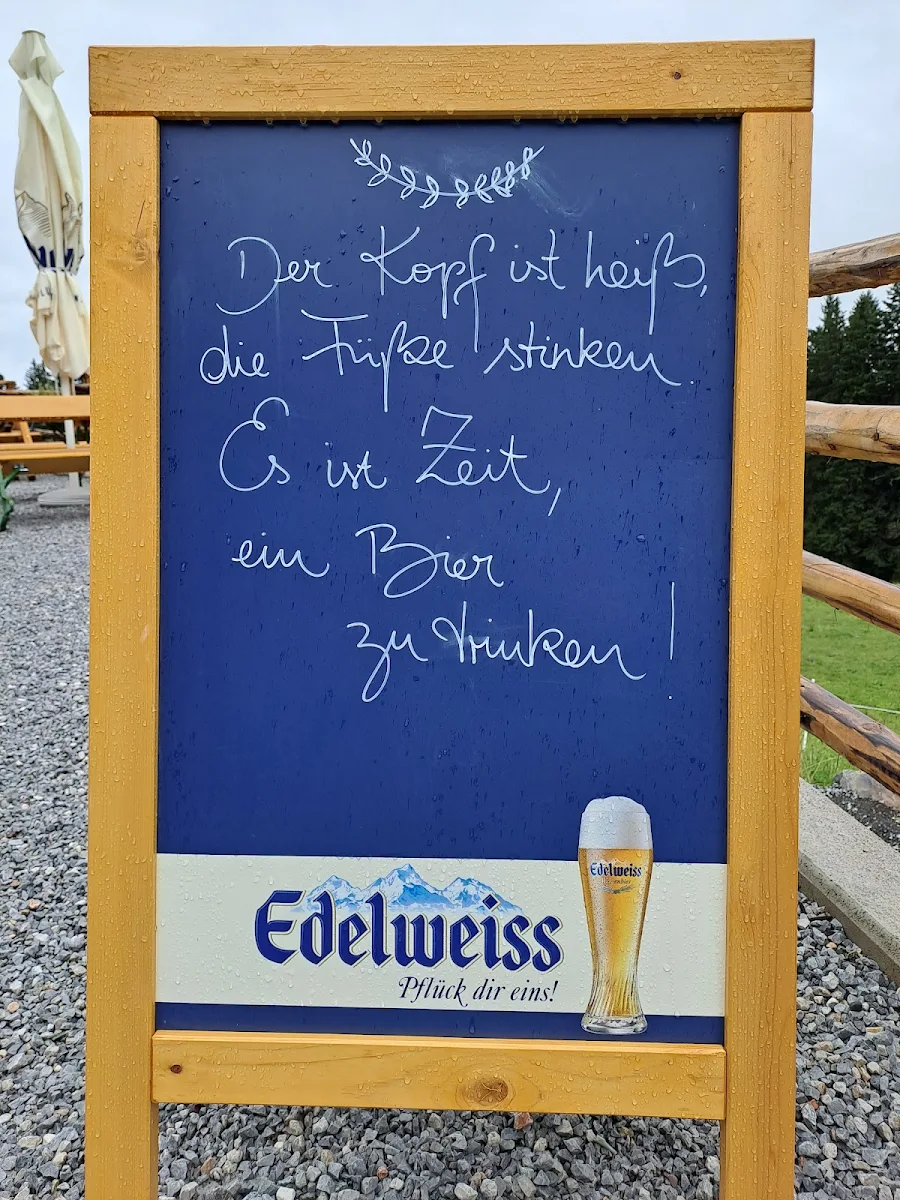 Der Kopf ist heiß,
die Füße stinken.
Es ist Zeit,
ein Bier
zu trinken!
Edelweiss
Pflück dir eins!
Edelweiss